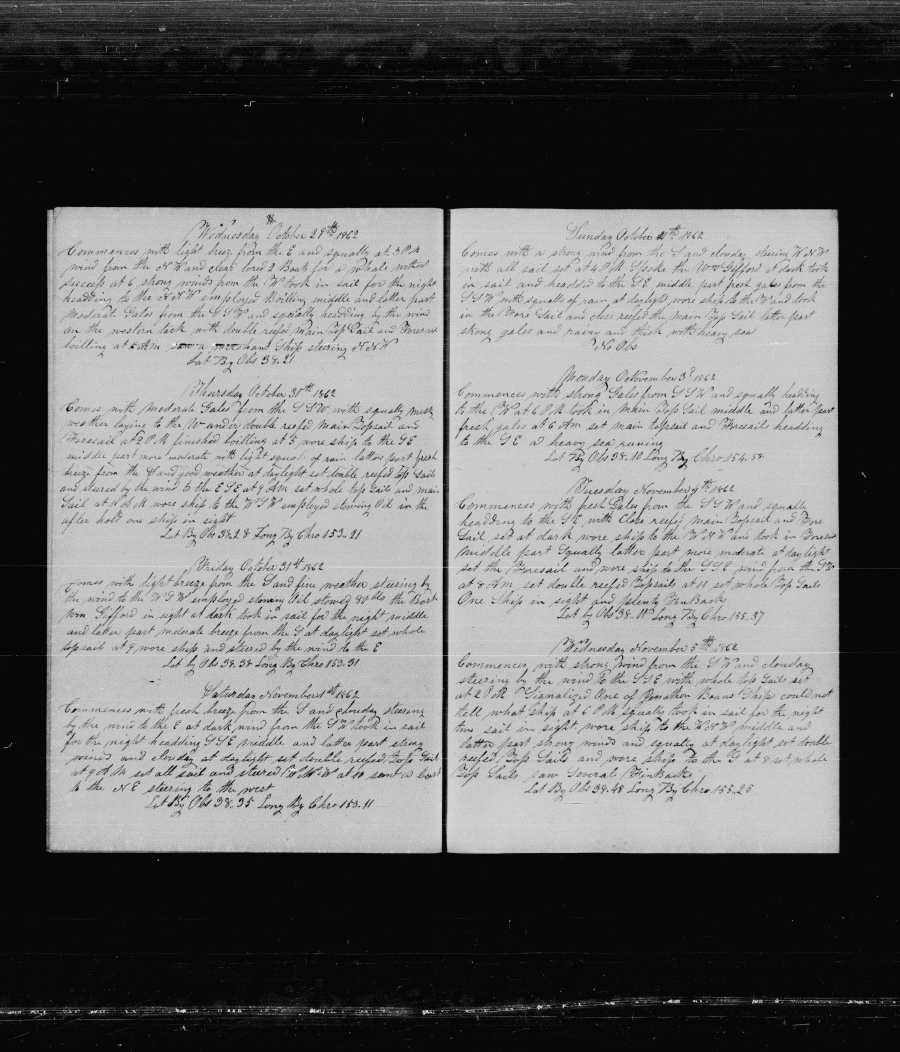 Wednesday October 29th 1862
Commences with light breez from the E and squally at 3 P.M
wind from the N W and clear lored 2 Boats for a whale without
success at 6 strong winds from the W took in sail for the night
heading to the N N W employed Boilling middle and latter part
Moderate Gales from the S S W and squally headding by the wind
on the western tack with double reefed Main Top Sail and Foresail
boilling at 5 A.m saw a merchant Ship steering N N W
Lat By Obs 38.21
Thursday October 30th 1862
Comes with Moderate Gales from the S S W with squally musty
weather laying to the W under double reefed Main Topsail and
Foresail at 2 P.M finished boilling at 5 wore ship to the S E
middle part more moderate with light squal of rain latter part fresh
breeze from the S and good weather at daylight set double reefed Top Sails
and steared by the wind to the E S E at 9 A.M set whole top Sails and main
Sail at M wore ship to the W S W employed stowing Oil in the
after hold one ship in sight
Lat By Obs 38.28 Long By Chro 153.21
Friday October 31st 1862
Comes with light breeze from the S and fine weather steering by
the wind to the W S W employed stowing Oil stowed 80 bbls the Bark
Wm Gifford in sight at dark took in sail for the night middle
and latter part moderate breeze from the S at daylight set whole
topsails at 9 wore ship and steered by the wind to the E
Lat by Obs 38.38 Long By Chro 153.31
Saturday November 1st 1862
Commences with fresh breeze from the S and clouday steering
by the wind to the E at dark wind from the S W took in sail
for the night headding S S E middle and latter part strong
winds and clouday at daylight set double reefed Top Sails
at 9 A.M set all sail and steered W N W at 10 sent a boat
to the N E steering to the west
Lat By Obs 38.35 Long By Chro 153.11
Sunday October 2th 1862
Comes with a strong wind from the S and clouday steering W N W
with all sail set at 4 P.M Spoke the Wm Gifford at dark took
in sail and headed to the S E middle part fresh gales from the
S S W with squalls of rain at daylight wore ship to the W and took
in the Fore Sail and close reefed the main Top Sail latter part
strong gales and rainy and thick with heavy sea
No Obs
Monday November 3d 1862
Commences with strong Gales from S S W and squally headding
to the W at 6 P.M took in Main Top Sail middle and latter part
fresh gales at 6 A.m set main topsail and Foresail headding
to the S E a heavy sea runing
Lat By Obs 38.10 Long By Chro 154.58
Tuesday November 4th 1862
Commences with fresh Gales from the S S W and squally
headding to the S E with Close reefed main Topsail and Fore
Sail set at dark wore ship to the W N W and took in Foresail
Middle part Squally latter part more moderate at daylight
set the Foresail and wore ship to the S S E wind from the S W
at 8 A.m set double reefed Topsails at 11 set whole Top Sails
One Ship in sight and plenty FinBacks
Lat by Obs 38.11 Long By Chro 155.37
Wednesday November 5th 1862
Commences with strong wind from the S W and clouday
steering by the wind to the S S E with whole Top Sails set
at 2 P.M Signalized One of Jonathan Bourns Ships could not
tell what ship at 6 P.M squally took in sail for the night
two sail in sight wore ship to the W N W middle and
latter part strong winds and squally at daylight set double
reefed Top Sails and wore ship to the S at 8 set whole
Top Sails saw Several FinBacks
Lat By Obs 38.48 Long By Chro 155.25